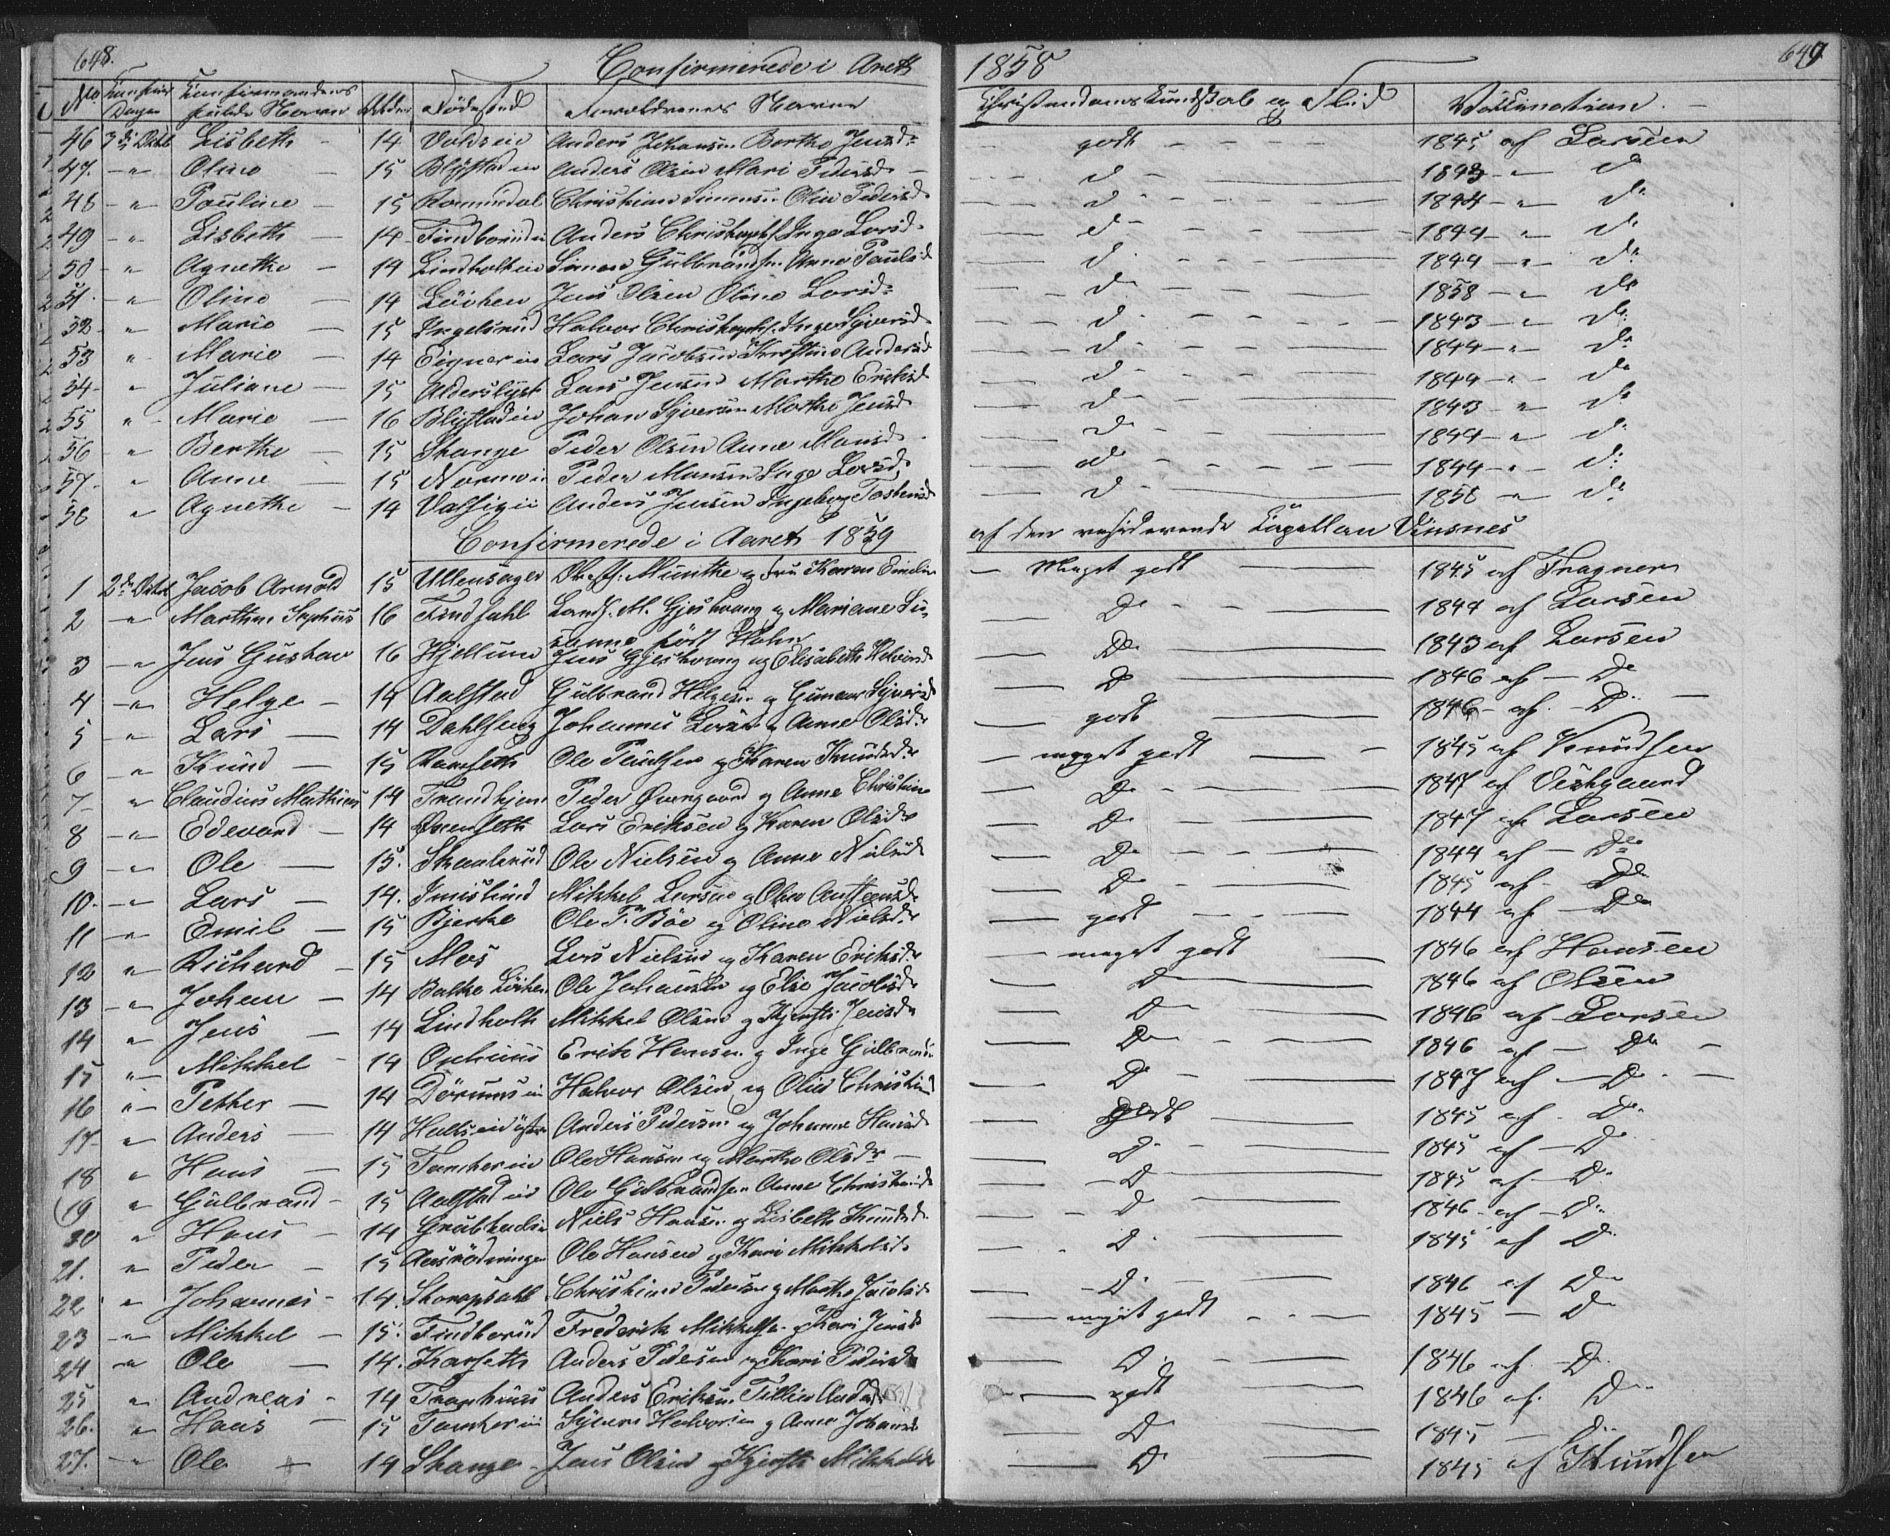 648. Confirmerede i Aaret 1858 649
No Confirm Dagen Confirmandens fulde Navn Alder Fødested Forældrenes Navne Christendoms Kundskab og Flid Vaccination
46 3die Octbr Lisbeth 14 Anders Johansen Berthe Jensd. godt 1845 af Larsen
47. " Oline 15 Blystaden Anders Olsen Mari Pedersd. d 1843 " d
48 " Pauline 15 Romundal Christian Simensen Olia Pedersd. d 1844 " do
49 " Lisbeth 14 Findborud Anders Christophs. Inge Larsd. d 1844 " d
50 " Agnethe 14 Lindholtei Simen Gulbrandsen Anne Paulsd. d 1844 " do
51. " Oline 14 Løichen Jens Olsen Oline Larsd. d 1858 " do
52 " Marie 15 Ingelsrud Halvor Christophs. Inge Syversd. d 1843 " do
53 " Marie 14 Eignerei Lars Jacobsen Christine Andersd. d 1844 " do
54 " Juliane 15 Alderslyst Lars Jensen Marthe Eriksd. d 1844 " do
55 " Marie 16 Blystadei Johan Syversen Marthe Jensd. d 1843 " do
56 " Berthe 15 Skange Peder Olsen Anne Monsd. d 1844 " d
57. " Anne 15 Peder Monsen Inge Larsd. do 1844 " d
58 " Agnethe 14 Anders Jensen Ingeborg Tostensd. d 1858 " do
Confirmerede i Aaret 1859 af den residerende Capellan Vinsnes
1 2de Octbr Jacob Arnold 15 Ullensager Munthe og Fru Karen Emelie Meget godt 1845 af Fragner
2 " Marthin Sephus 16 Findsahl Landh. M. Gjeshvang og Mariane Susanne født Hahn Do 1844 af Larsen
3 " Jens Gustav 16 Hjellum Jens Gjeshvang og Elisabeth Halvorsd. Do 1843 af Larsen
4 " Helge 14 Aalstad Gulbrand Helgesen og Gunnor Syversd. D 1846 af Do
5 " Lars 14 Dahlseng Johannes Larsen og Anne Olsd. godt 1846 af. Do
6 " Knud 15 Ramseth Ole Paulsen og Karen Knudsd. meget godt 1845 af Knudsen
7 " Claudius Mathias 14 Trondhjem Peder Øvergaard og Anne Christine Do 1847 af Vestgaard
8 " Edevard 14 Lars Eriksen og Karen Olsd. D 1847 af Larsen
9 " Ole 15. Skaalerud Ole Nielsen og Anne Nielsd. Do 1844 af Do
10. " Lars 14. Imislund Mikkel Larsen og Oline Do 1845 af Do
11 " Emil 15 Bjerke Ole P. Bøe og Oline Nielsd. godt 1844 af Do
12 " Richard 15 Mos Lars Nielsen og Karen Eriksd. meget godt 1846 af Hansen
13 " Johan 14 Balke Løiken Ole Johansen og Elise Jacobsd. D 1846 af Olsen
14 " Jens 14 Lindholt Mikkel Olsen og Kjersti Jensd. D 1846 af Larsen
15 " Mikkel 14 Ophuus Erik Hansen og Inge Gulbrandsd. Do 1846 af Do
16 " Petter 14 Dørumsei Halvor Olsen og Olia Christiansd. D 1847 af Do
17 " Anders 14 Anders Pedersen og Johanne Hansd. godt 1845 af. Do
18 " Hans 15 Tankerei Ole Hansen og Marthe Olsdr D 1845 af D
19 " Gulbrand 15 Aalstadei Ole Gulbrandsen Anne Christiansd. D 1845 af D.
20 " Hans 14 Niels Hansen og Lisbeth Knudsd. D 1846 af Do
21. " Peder 15 Aasrødningen Ole Hansen og Kari Mikkelsd. D. 1845 af D.
22 " Johannes 14. Skorapdahl Christian Pedersen og Marthe Jacobsd. D. 1846 af Do
23 " Mikkel 15. Findborud Frederik Mikkelsen og Kari Jensd. meget godt 1845 D
24 " Ole 14. Karseth Anders Pedersen og Kari Pedersd. D. 1846 af D.
25 " Andreas 14 Trophuus Anders Eriksen Tilline Andersd. godt 1846 af. D
26. " Hans 15 Tankerei Syvers Halvorsen og Anne Johansd. D 1845 D.
27. " Ole 14 Skange Jens Olsen og Kjersti Mikkelsd. D 1845 af Knudsen